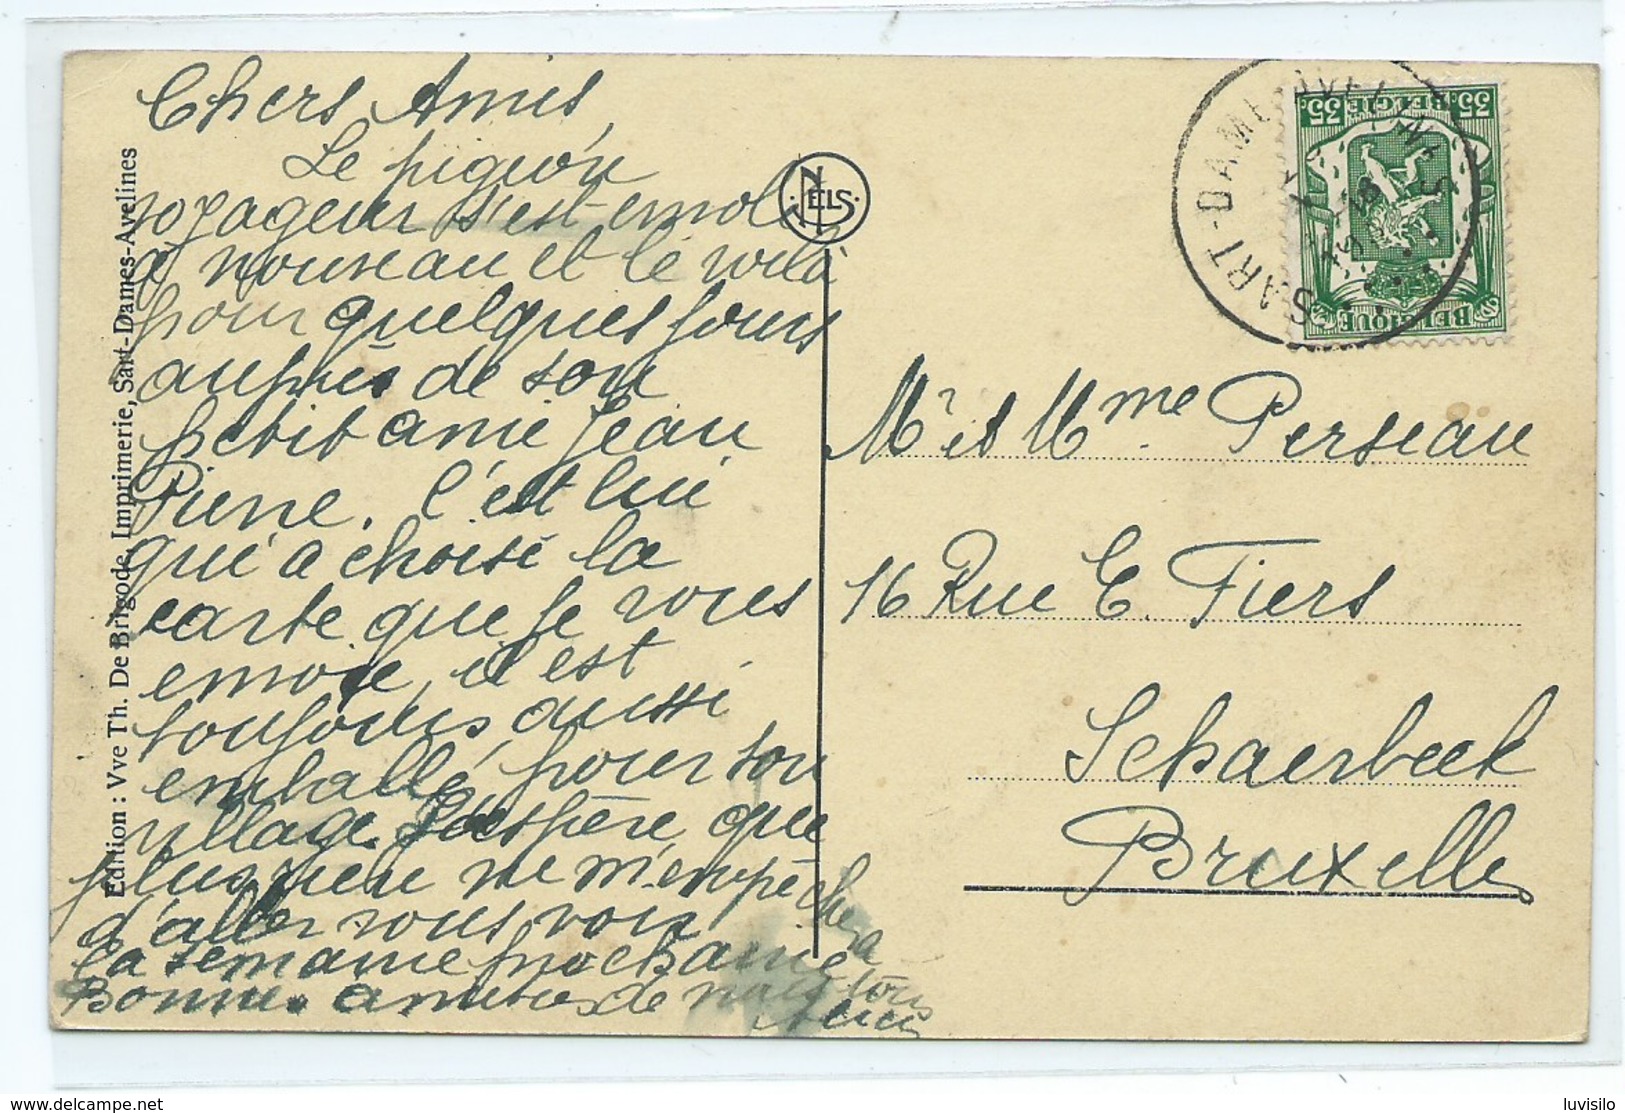 Chers Amis,
Le pigeon
voyageur s'est envolé
à nouveau et le voilà
pour quelques jours
auprès de son
petit ami Jean
Pierre. C'est lui
qui a choisi la
carte que je vous
envoie, il est
toujours aussi
emballé pour son
village. J'espère que
plus rien ne m'empêchera
d'aller vous voir
la semaine prochaine
Bonnes amitiés de nous tous
Edition : Vve Th. De Brigode, Imprimerie, Sart-Dames-Avelines
NELS
SART-DAMES-AVELINES
BELGIE
35c
35c
BELGIQUE
Mr et Mme Perseau
16 Rue E. Fiers
Schaerbeek
Bruxelles
delcampe.net
luvisilo